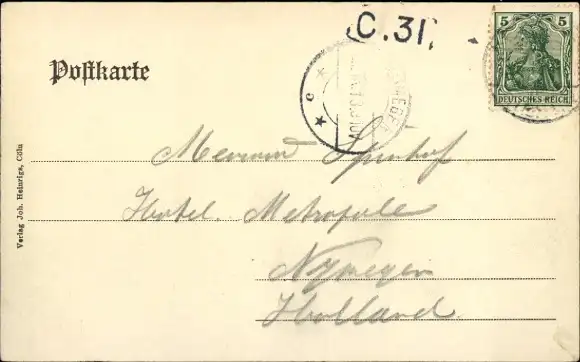 C.31.
5 5
DEUTSCHES REICH
Postkarte
Verlag Joh. Heinrigs, Cöln
Hotel Metropole
Nymegen
Holland